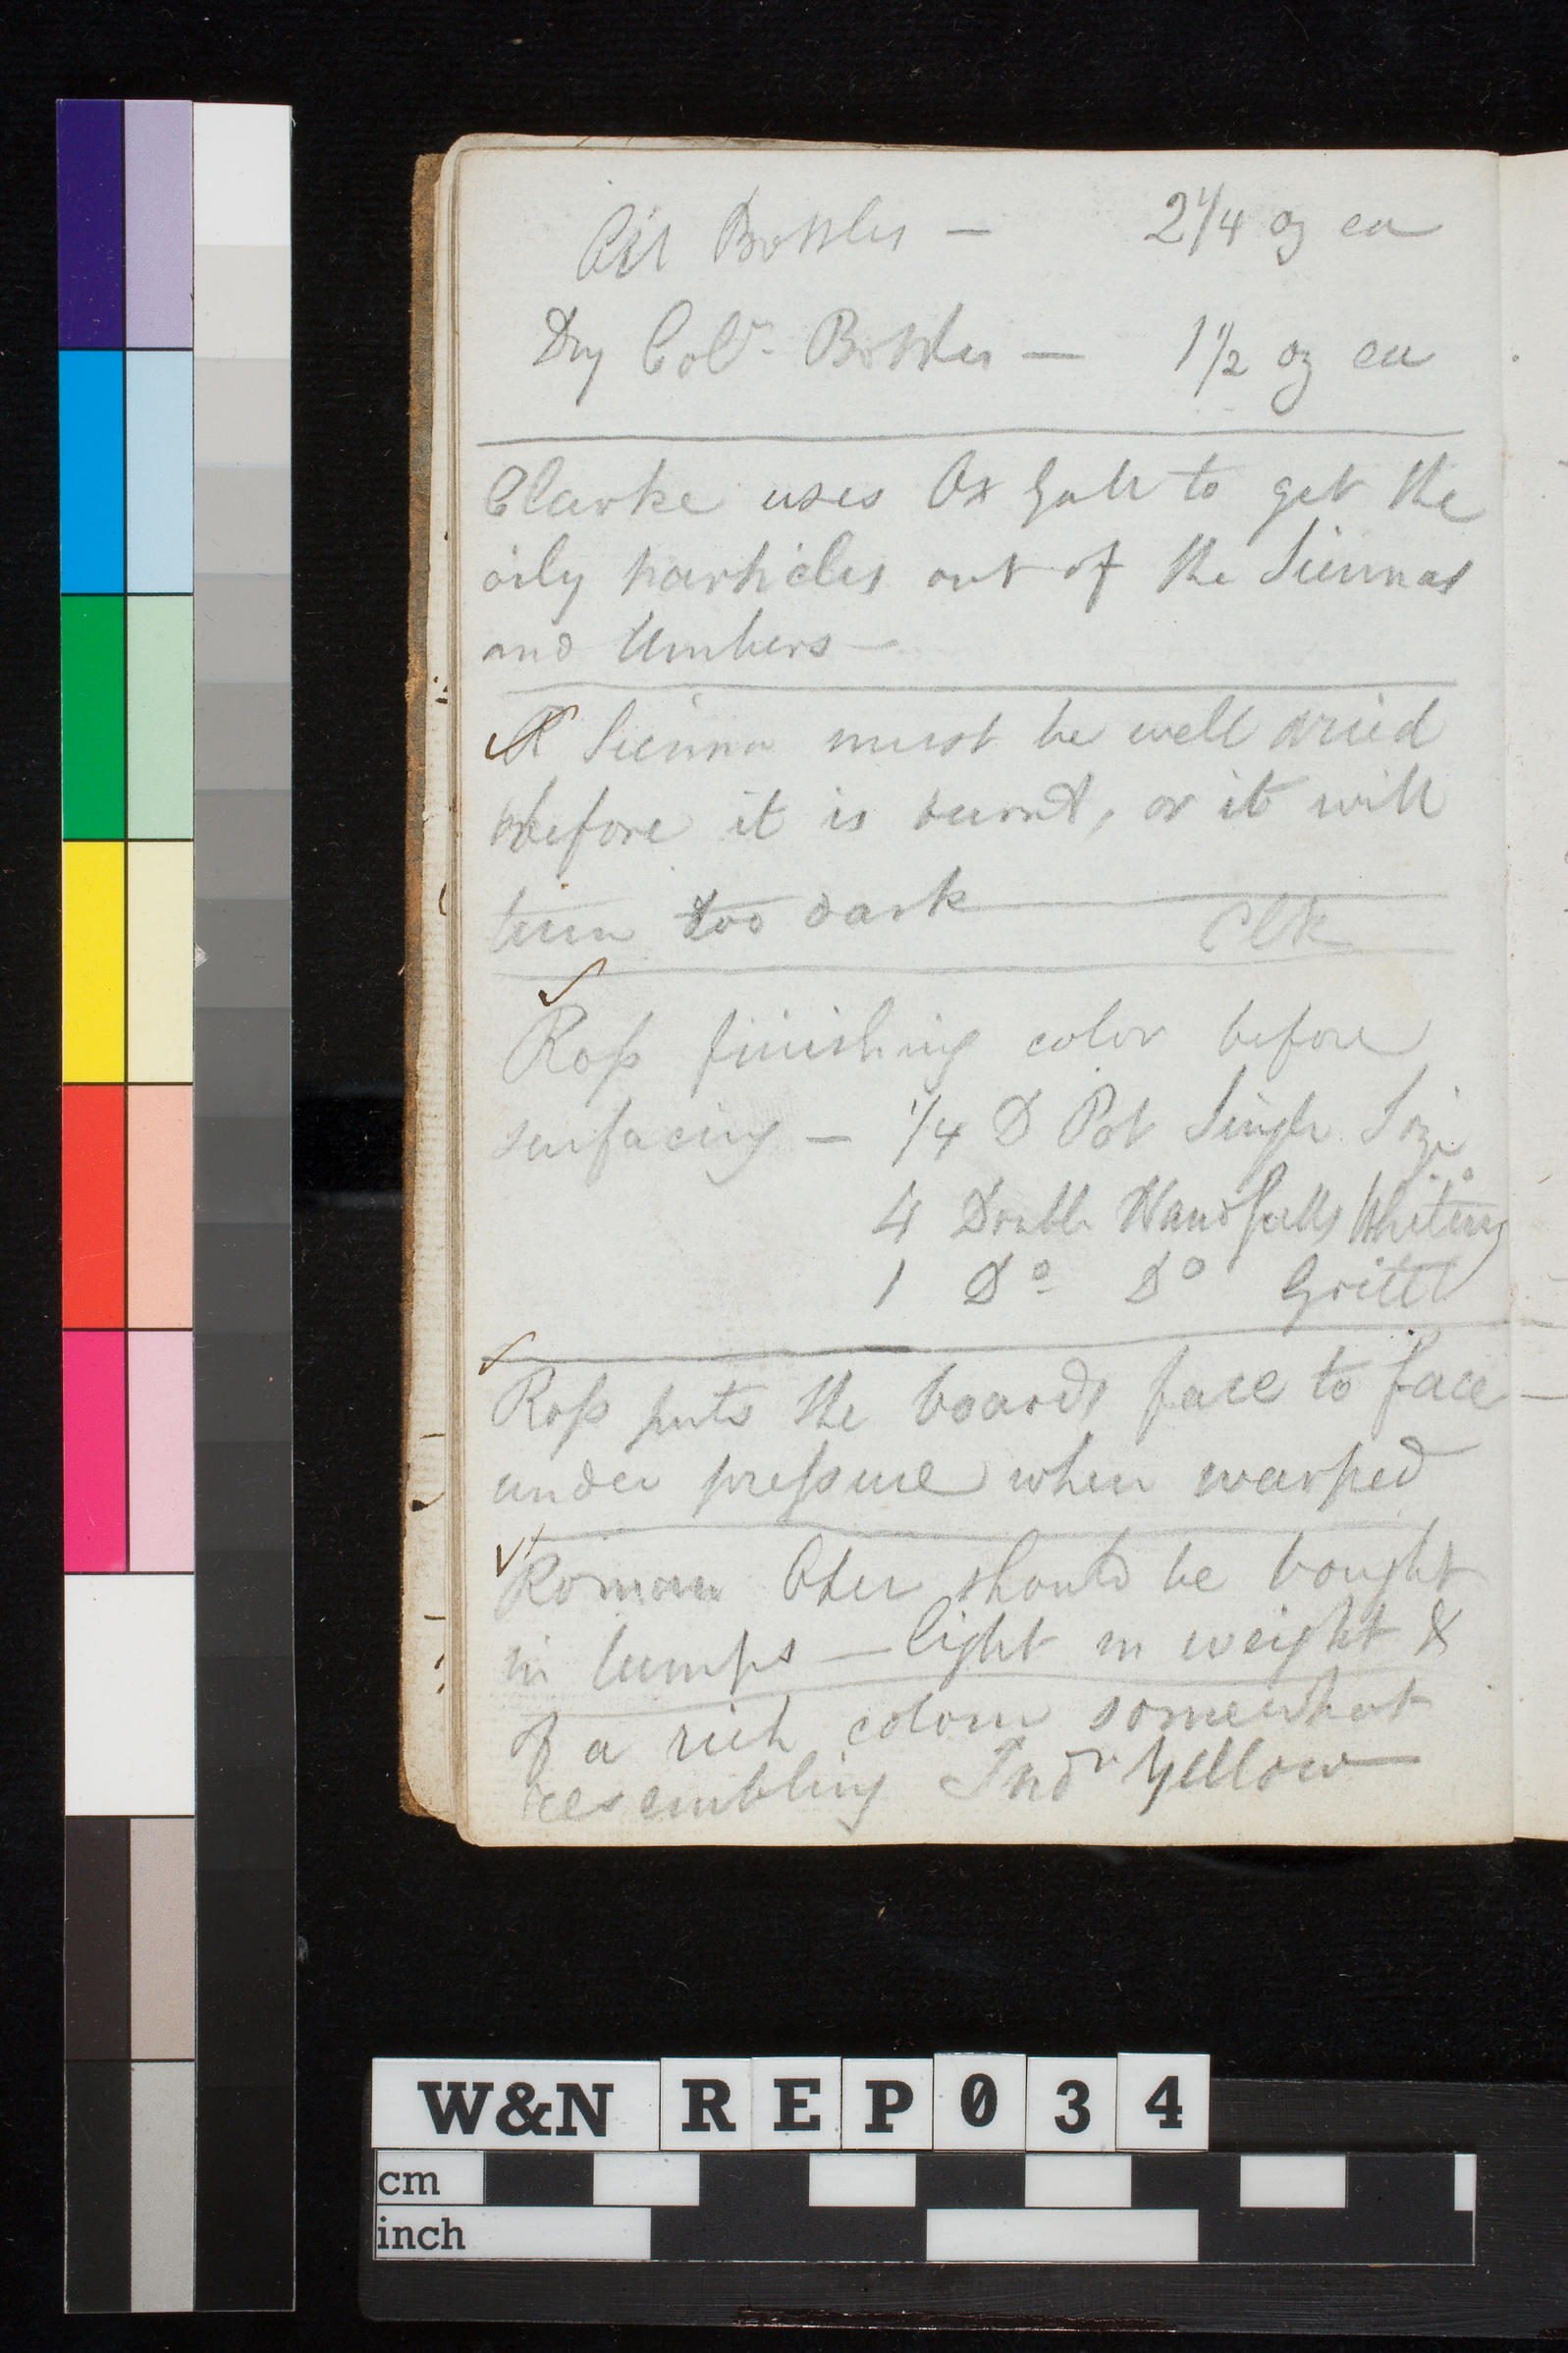 Oil Bottles — 2 1/4 oz ea
Dry Colr. Bottles — 1 1/2 oz ea
Clarke uses Ox Gall to get the
oily particles out of the Siennas
and Umbers —
R Sienna must be well dried
before it is burnt, or it will
turn too dark
Clk
Roſs finishing color before
surfacing — 1/4 D Pot Single Size
4 Double Handfulls Whiting
1 Do Do Gritt
Roſs puts the boards face to face —
under preſsure when warped
Roman Oker should be bought
in lumps — light in weight &
of a rich colour somewhat
resembling Indn Yellow
W&N REP034
cm
inch